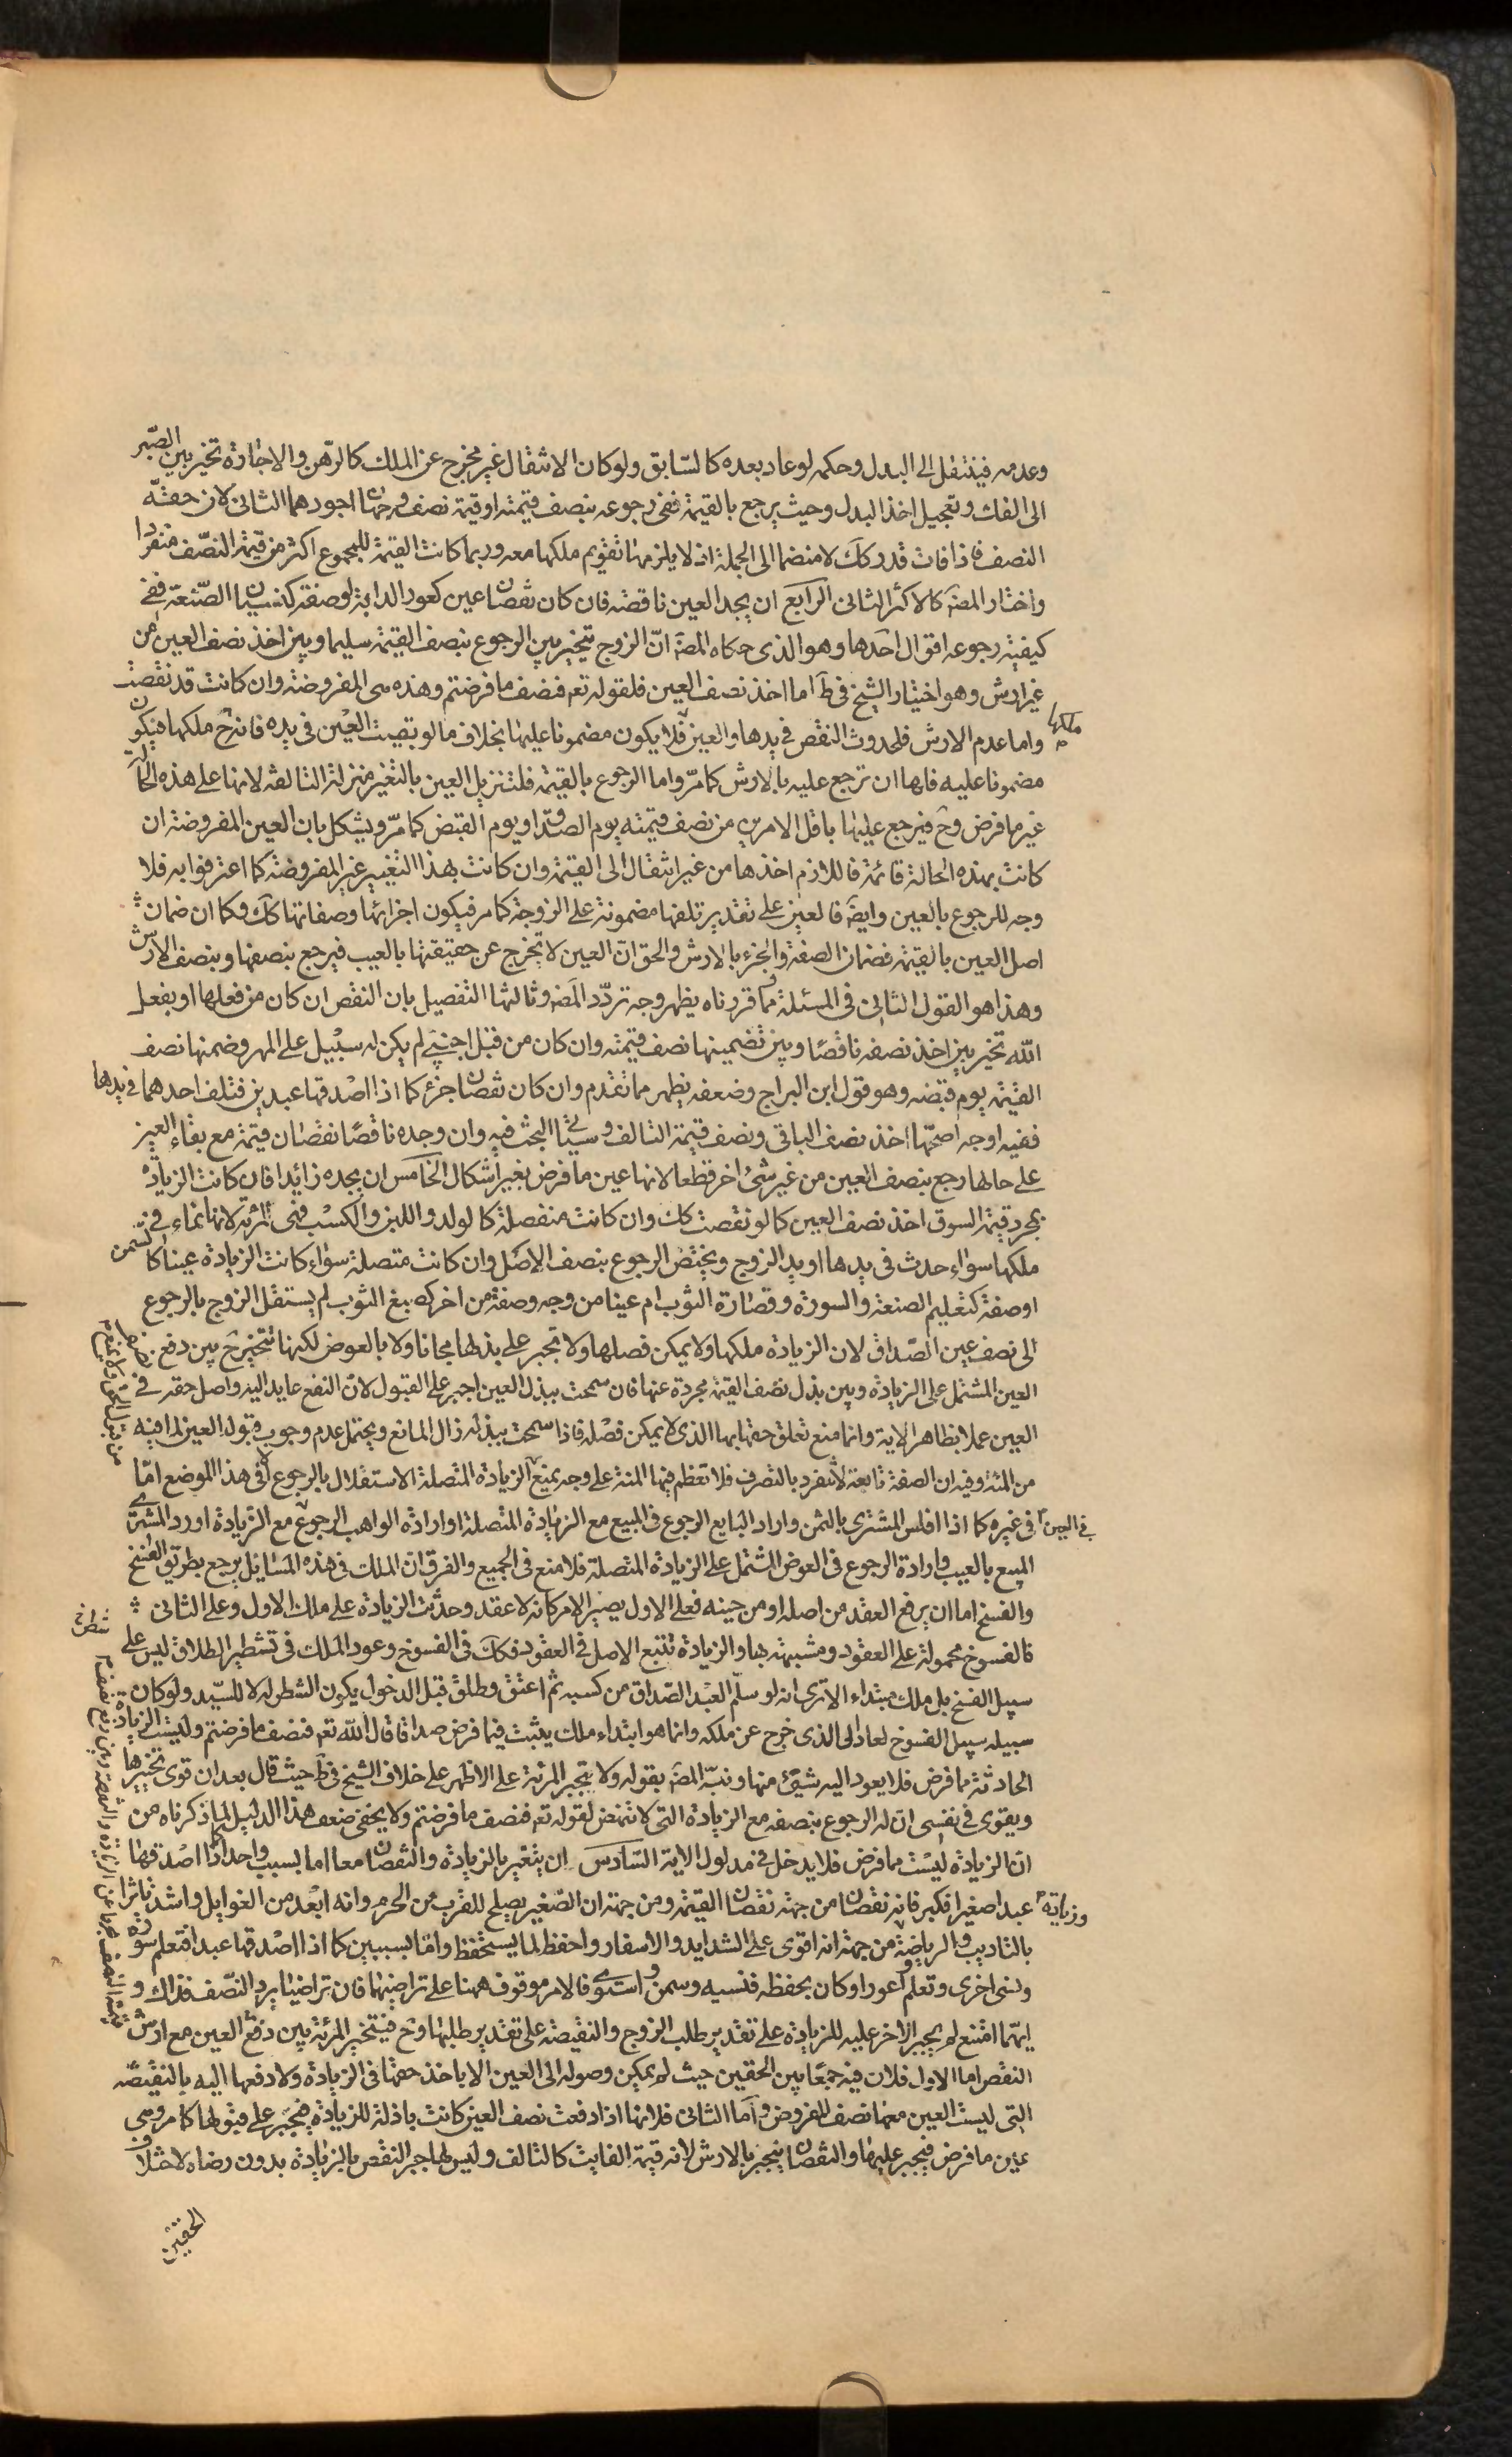 وعدمه فينتقل الى البدل وحكمه لو عاد بعده كالسّابق ولو كان الانتقال غير مخرج عن الملك كالرّهن والاجارة تخير بين الصّبر
الى الفك وتعجيل اخذ البدل وحيث يرجع بالقيمة ففى رجوعه بنصف قيمته او قيمة نصفه وجهان اجودهما الثانى لان حقّه
النصف فاذا فات قدر كك لا منضما الى الجملة اذ لا يلزمها تقويم ملكها معه وربما كانت القيمة للمجموع اكثر من قيمة النصّف منفردا
واختار المصَ كالاكثر الثانى الرابع ان يجد العين ناقصة فان كان نقصان عين كعور الدابة او صفة كنسيان الصّنعة ففى
كيفية رجوعه اقوال احدها وهو الذى حكاه المصَ انّ الزوج يتخير بين الرجوع بنصف القيمة سليما وبين اخذ نصف العين من
غير ارش وهو اختيار الشيخ فى طَ اما اخذ نصف العين فلقوله تعَ فنصف ما فرضتم وهذه هى المفروضة وان كانت قد نقصت
واما عدم الارش فلحدوث النقص فى يدها والعين ملكها فلا يكون مضمونا عليها بخلاف ما لو تعيبت العين فى يده فانه ح ملكها فيكون
مضمونا عليه فلها ان ترجع عليه بالارش كما مرّ واما الرجوع بالقيمة فلتنزيل العين بالتغير منزلة التالفة لانها على هذه الحالَ
غير ما فرض وح فيرجع عليها باقل الامرين من نصف قيمته يوم الصداق او يوم القبض كما مرّ ويشكل بان العين المفروضة ان
كانت بهذه الحالة قائمة فاللازم اخذها من غير انتقال الى القيمة وان كانت بهذا التغيير غير المفروضة كما اعترفوا به فلا
وجه للرجوع بالعين وايضَ فالعين على تقدير تلفها مضمونة على الزوجة كما مر فيكون اجزائها وصفاتها كك وكما ان ضمان
اصل العين بالقيمة فضمان الصفة والجزء بالارش والحق انّ العين لا تخرج عن حقيقتها بالعيب فيرجع بنصفها وبنصف الارش
وهذا هو القول الثانى فى المسئلة ومما قررناه يظهر وجه تردّد المصَ وثالثها التفصيل بان النقص ان كان من فعلها او بفعل
الله تخير بين اخذ نصفه ناقصًا وبين تضمينها نصف قيمته وان كان من قبل اجنبى لم يكن له سبيل على المهر وضمنها نصف
القيمة يوم قبضه وهو قول ابن البراج وضعفه يظهر مما تقدم وان كان نقصان جزء كما اذا اصدقها عبدين فتلف احدهما فى يدها
ففيه اوجه اصحّها اخذ نصف الباقى ونصف قيمة التالف وسيأتى البحث فيه وان وجده ناقصًا نقصان قيمة مع بقاء العين
على حالها رجع بنصف العين من غير شئ اخر قطعا لانها عين ما فرض بغير اشكال الخامس ان يجده زائدا فان كانت الزيادة
بمجرد قيمة السوق اخذ نصف العين كما لو نقصت كك وان كانت منفصلة كالولد واللبن والكسب فهى للمرئة لانها نماء فى
ملكها سواء حدث فى يدها او يد الزوج ويختص الرجوع بنصف الاصل وان كانت متصلة سواء كانت الزيادة عينا كالسمن
او صفة كتعليم الصنعة والسورة وقصارة الثوب ام عينا من وجه وصفة من اخر كصبغ الثوب لم يستقل الزوج بالرجوع
الى نصف عين الصّداق لان الزيادة ملكها ولا يمكن فصلها ولا تجبر على بذلها مجانا ولا بالعوض لكنها تتخير ح بين دفع نصف
العين المشتمل على الزيادة وبين بذل نصف القيمة مجردة عنها فان سمحت ببذل العين اجبر على القبول لانّ النفع عايد اليه واصل حقه فى
العين عملا بظاهر الاية وانما منع تعلق حقها بها الذى لا يمكن فصله فاذا سمحت ببذله زال المانع ويحتمل عدم وجوب قبوله العين لما فيه
من المنة وفيه ان الصفة تابعة لا تنفرد بالتصرف فلا تعظم فيها المنة على وجه يمنع الزيادة المتصلة الاستقلال بالرجوع فى هذا الموضع امّا
فى غيره كما اذا افلس المشترى بالثمن واراد البايع الرجوع فى المبيع مع الزيادة المتصلة او ارادة الواهب الرجوع فى العين مع الزيادة او رد المشترى
المبيع بالعيب وارادة الرجوع فى العوض المشتمل على الزيادة المتصلة فلا منع فى الجميع والفرق ان الملك فى هذه المسايل يرجع بطريق الفسخ
والفسخ اما ان يرفع العقد من اصله او من حينه فعلى الاول يصير الامر كانه لا عقد وحدثت الزيادة على ملك الاول وعلى الثانى
فالفسوخ محمولة على العقود ومشبهة بها والزيادة تتبع الاصل فى العقود فكك فى الفسوخ وعود الملك فى تشطير الطلاق ليس على
سبيل الفسخ بل ملك مبتداء الا ترى انه لو سلّم العبد الصّداق من كسبه ثم اعتق وطلق قبل الدخول يكون الشطر له لا للسيّد ولو كان
سبيله سبيل الفسوخ لعاد الى الذى خرج عن ملكه وانما هو ابتداء ملك يثبت فيما فرض صداقا قال الله تعَ فنصف ما فرضتم وليست الزيادة
الحادثة مما فرض فلا يعود اليه شئ منها ونبّه المصَ بقوله ولا تجبر المرئة على الاظهر على خلاف الشيخ فى طَ حيث قال بعد ان قوى تخيرها
ويقوى فى نفسى ان له الرجوع بنصفه مع الزيادة التى لا تتميز لقوله تعَ فنصف ما فرضتم ولا يخفى ضعف هذا الدليل لما ذكرناه من
ان الزيادة ليست مما فرض فلا يدخل فى مدلول الاية السّادس ان يتغير بالزيادة والنقصان معا اما بسبب واحد كما اذا اصدقها
عبدا صغيرا فكبر فانه نقصان من جهة نقصان القيمة ومن جهة ان الصّغير يصلح للقرب من الحرم وانه ابعد من الغوايل واشد تاثرا
بالتاديب والرياضة وزيادة من جهة انه اقوى على الشدايد والاسفار واحفظ لما يستحفظ وامّا بسببين كما اذا اصدقها عبدا فتعلم سورة
ونسى اخرى وتعلم واعور او كان يحفظه فنسيه وسمن واستوى فالامر موقوف ههنا على تراضيهما فان تراضيا برد النّصف فذاك و
ايهّما امتنع لم يجبر الاخر عليه للزيادة على تقدير طلب الزوج والنقيصة على تقدير طلبها وح فيتخير المرئة بين دفع العين مع ارش
النقص اما الاول فلان فيه جمعًا بين الحقين حيث لم يمكن وصوله الى العين الا باخذ حقها فى الزيادة ولا دفعها اليه بالنقيصة
التى ليست العين معها نصف المفروض وامّا الثانى فلانها اذا دفعت نصف العين كانت باذلة للزيادة فيجبر على قبولها كما مر وهى
عين ما فرض فيجبر عليها والنقصان ينجبر بالارش لانه قيمة الفايت كالتالف وليس لها جبر النقص بالزيادة بدون رضاه لاختلاف
الحقين